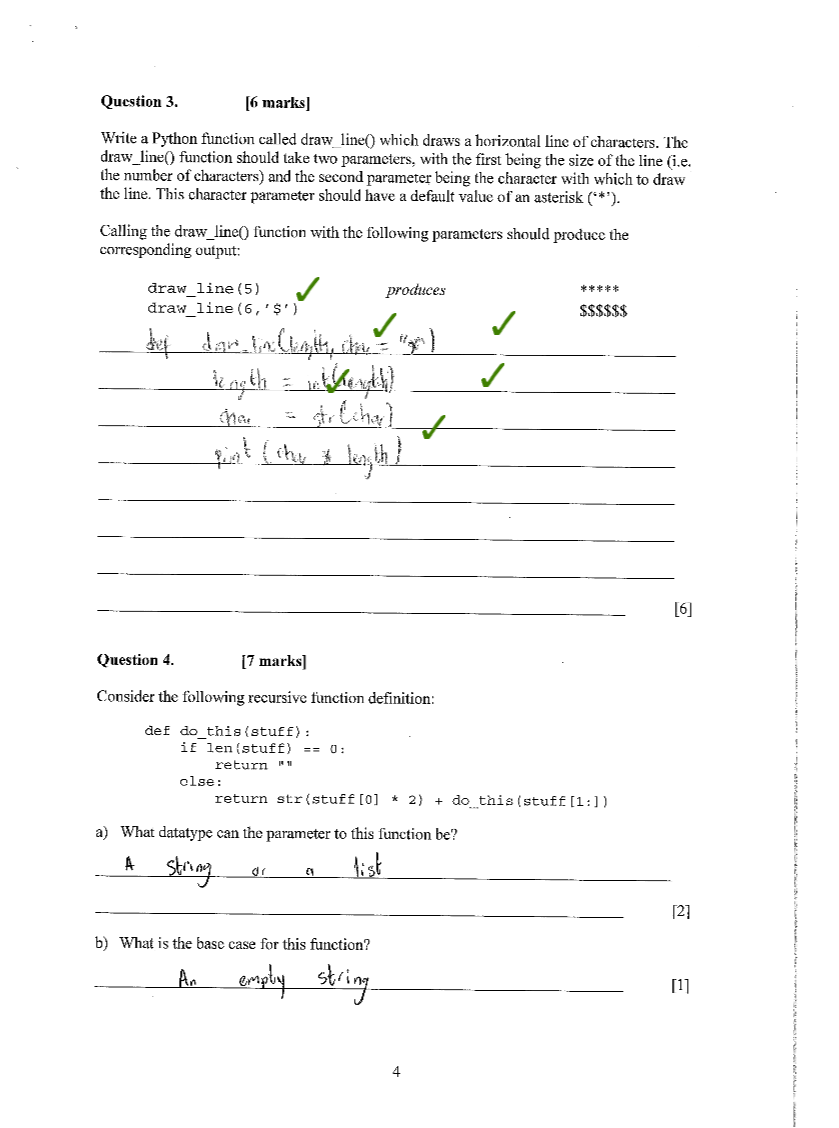 Question 3. [6 marks]
Write a Python function called draw_line() which draws a horizontal line of characters. The
draw_line() function should take two parameters, with the first being the size of the line (i.e.
the number of characters) and the second parameter being the character with which to draw
the line. This character parameter should have a default value of an asterisk (‘*’).
Calling the draw_line() function with the following parameters should produce the
corresponding output:
draw_line(5) produces *****
draw_line(6,'$') $$$$$$
def draw_line(length, char = "*")
length = int(length)
char = str(char)
print (char * length)
[6]
Question 4. [7 marks]
Consider the following recursive function definition:
def do_this(stuff):
if len(stuff) == 0:
return ""
else:
return str(stuff[0] * 2) + do_this(stuff[1:])
a) What datatype can the parameter to this function be?
A string or a list
[2]
b) What is the base case for this function?
An empty string [1]
4